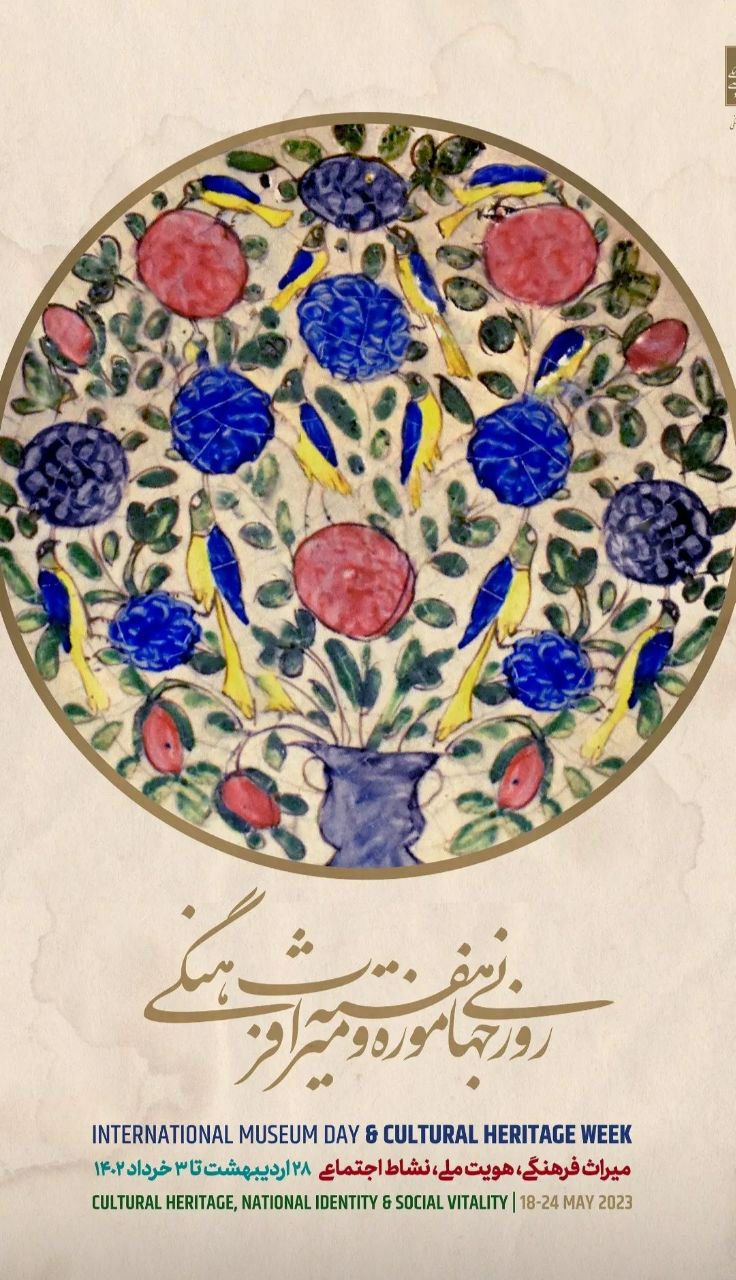 روز جهانی موزه و هفته میراث فرهنگی
INTERNATIONAL MUSEUM DAY & CULTURAL HERITAGE WEEK
میراث فرهنگی، هویت ملی، نشاط اجتماعی ۲۸ اردیبهشت تا ۳ خرداد ۱۴۰۲
CULTURAL HERITAGE, NATIONAL IDENTITY & SOCIAL VITALITY | 18-24 MAY 2023